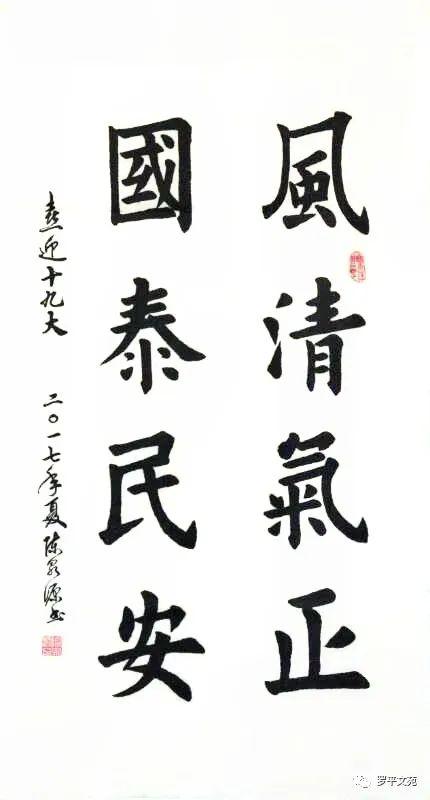 風清氣正
國泰民安
喜迎十九大 二〇一七年夏 陈泉源书
罗平文苑